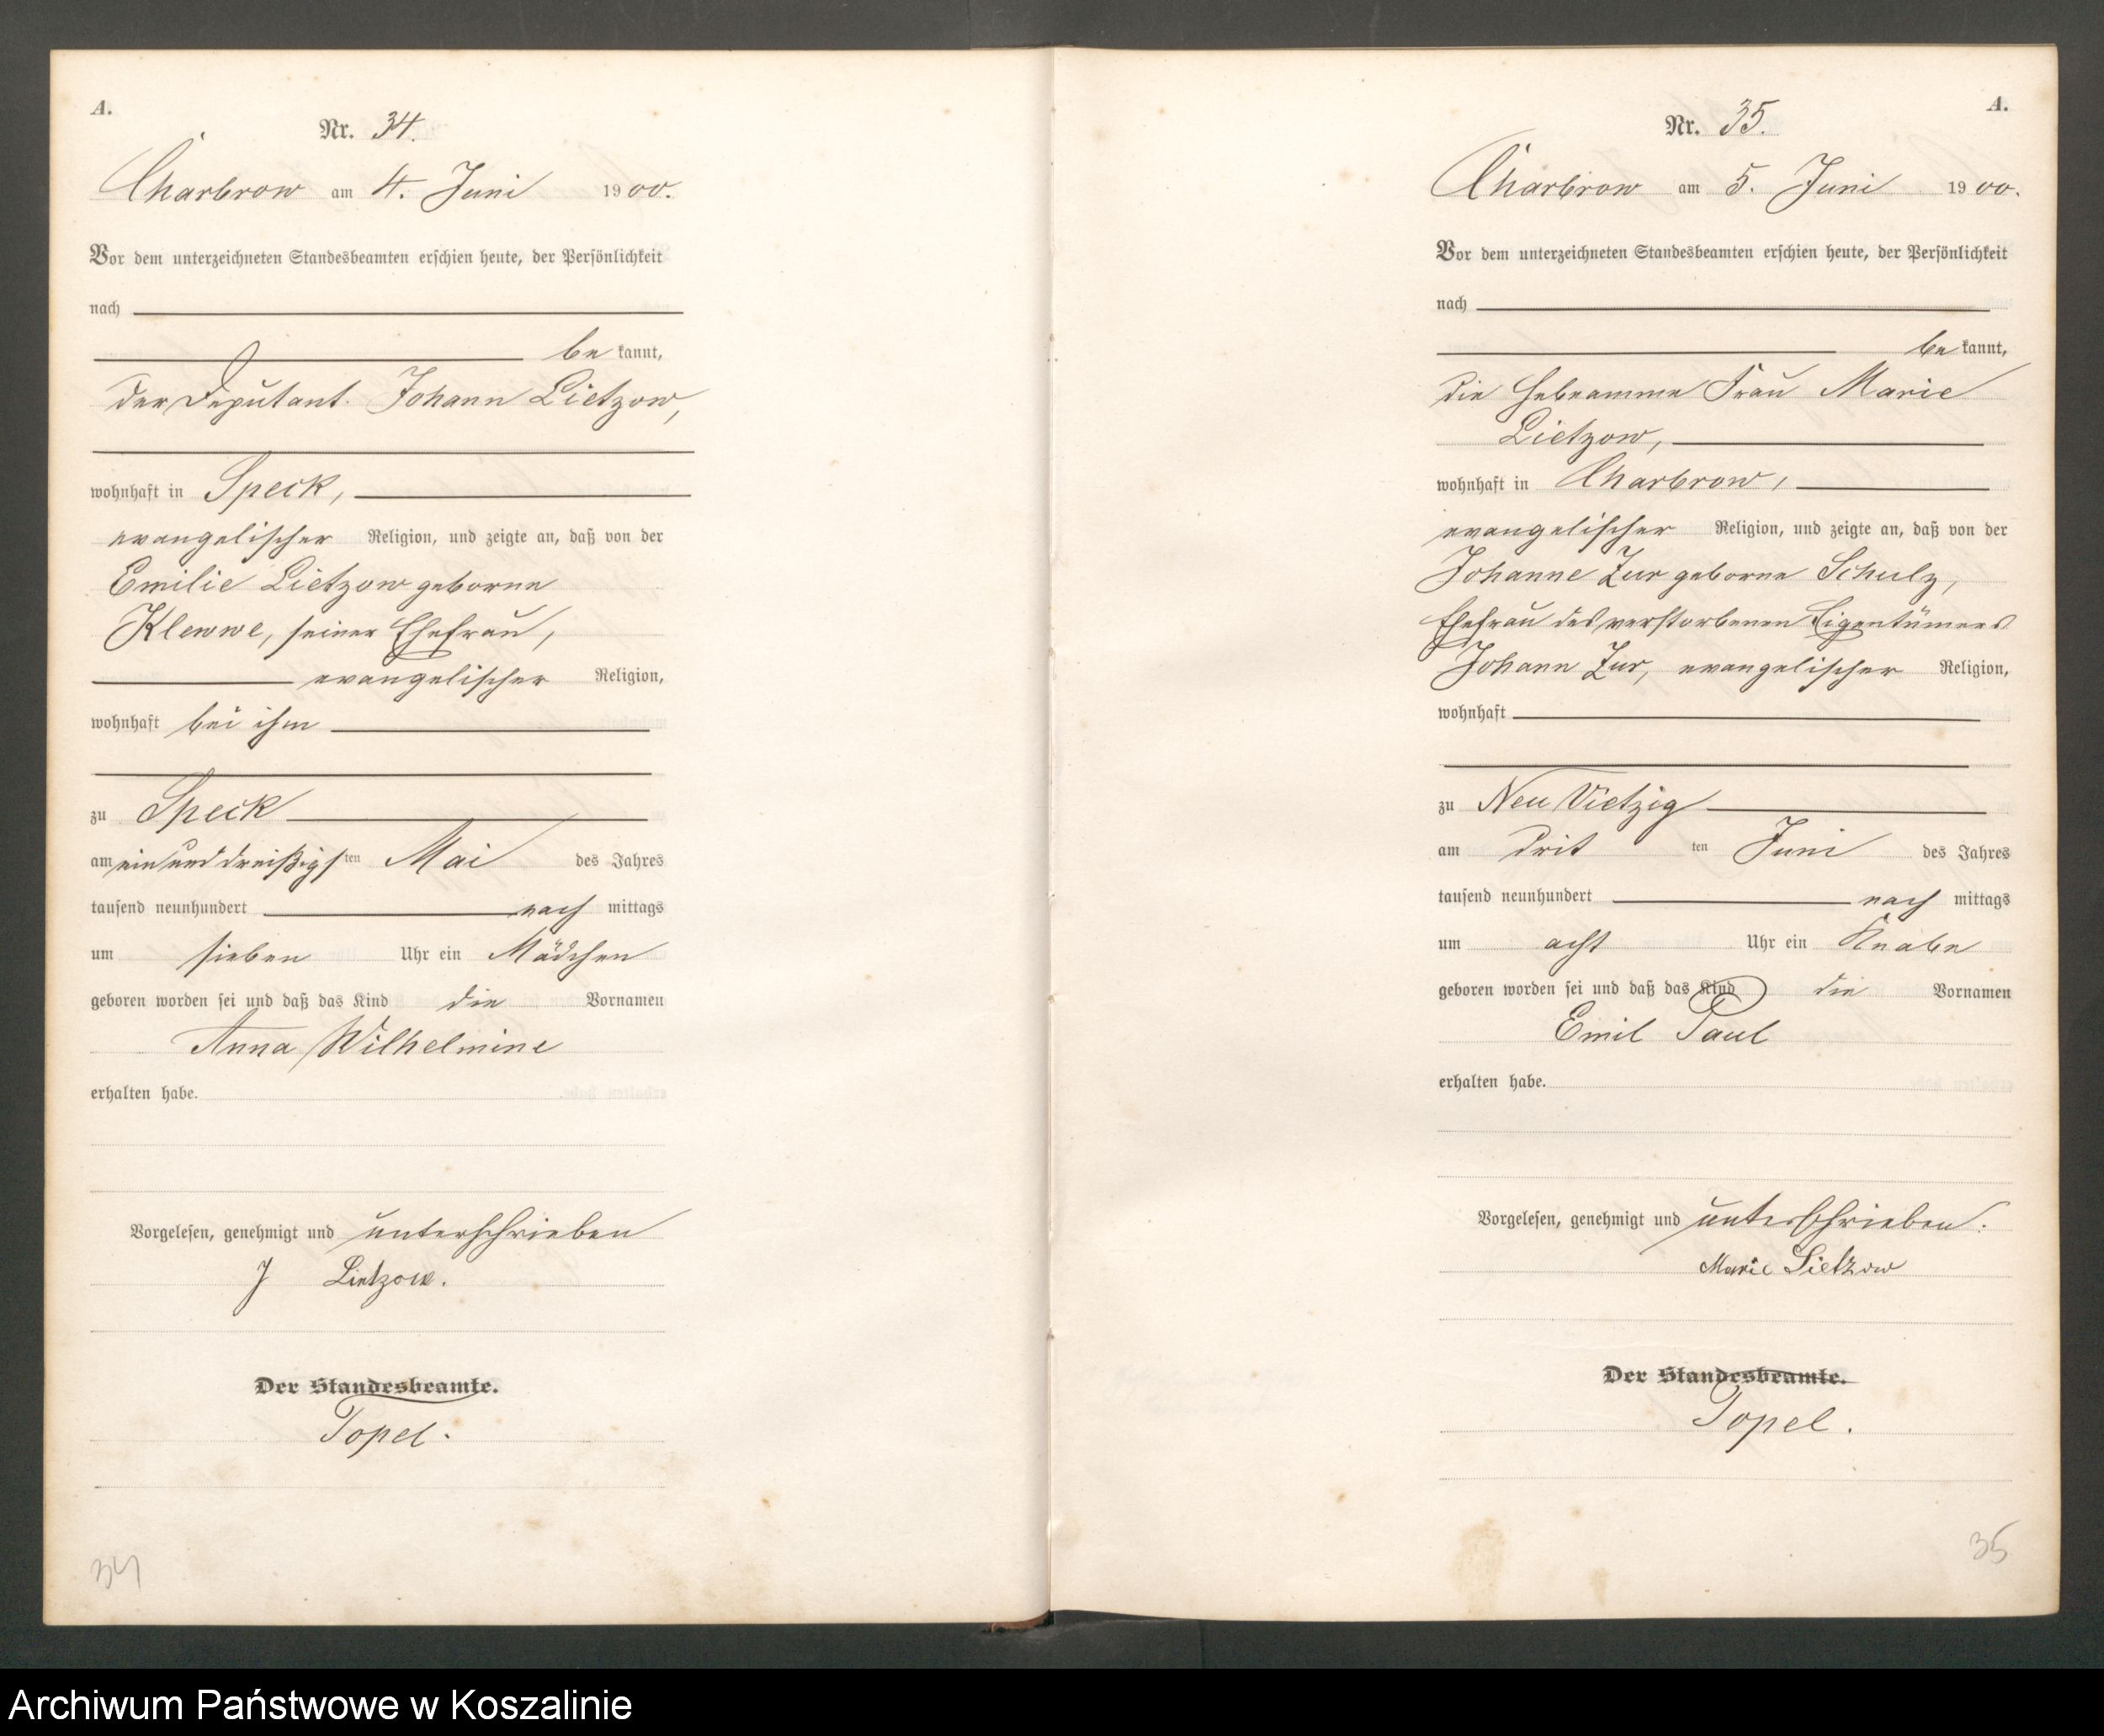 A.
Nr. 34.
Charbrow am 4. Juni 1900.
Vor dem unterzeichneten Standesbeamten erschien heute, der Persönlichkeit
nach
be kannt,
der Deputant Johann Lietzow,
wohnhaft in Speck,
evangelischer Religion, und zeigte an, daß von der
Emilie Lietzow geborne
Klewwe, seiner Ehefrau,
evangelischer Religion,
wohnhaft bei ihm
zu Speck
am ein und dreißigsten Mai des Jahres
tausend neunhundert nach mittags
um sieben Uhr ein Mädchen
geboren worden sei und daß das Kind die Vornamen
Anna Wilhelmine
erhalten habe.
Vorgelesen, genehmigt und unterschrieben
J Lietzow.
Der Standesbeamte.
Topel.
34
A.
Nr. 35.
Charbrow am 5. Juni 1900.
Vor dem unterzeichneten Standesbeamten erschien heute, der Persönlichkeit
nach
be kannt,
die Hebeamme Frau Marie
Lietzow,
wohnhaft in Charbrow,
evangelischer Religion, und zeigte an, daß von der
Johanne Zur geborne Schulz,
Ehefrau des verstorbenen Eigentümers
Johann Zur, evangelischer Religion,
wohnhaft
zu Neu Vietzig
am drit ten Juni des Jahres
tausend neunhundert nach mittags
um acht Uhr ein Knabe
geboren worden sei und daß das Kind die Vornamen
Emil Paul
erhalten habe.
Vorgelesen, genehmigt und unterschrieben.
Marie Lietzow
Der Standesbeamte.
Topel.
35
Archiwum Państwowe w Koszalinie